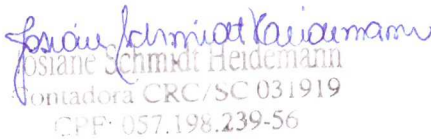 Josiane Schmidt Heidemann
Josiane Schmidt Heidemann
Contadora CRC/SC 031919
CPF: 057.198.239-56